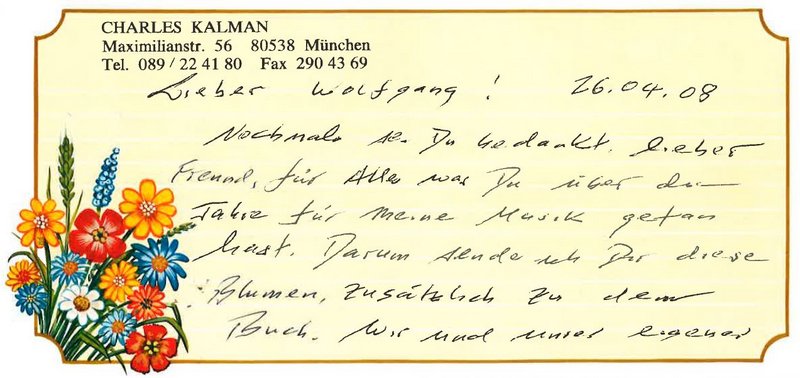 CHARLES KALMAN
Maximilianstr. 56 80538 München
Tel. 089 / 22 41 80 Fax 290 43 69
Lieber Wolfgang! 26.04.08
Nochmals sei Du bedankt, lieber
Freund, für Alles was Du über die
Jahre für meine Musik getan
hast. Darum sende ich Dir diese
Blumen, zusätzlich zu dem
Buch. Wir sind unser eigener